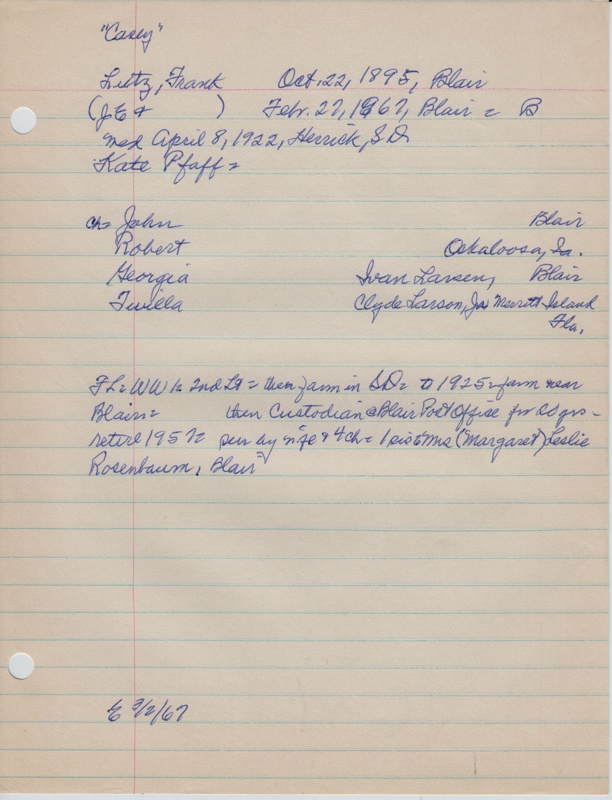 "Casey"
Lutz, Frank Oct. 22, 1895, Blair
(J E & ) Febr. 27, 1967, Blair = B
md April 8, 1922, Herrick, S.D.
Kate Pfaff =
ch= John Blair
Robert Oskaloosa, Ia.
Georgia Ivan Larsen, Blair
Twilla Clyde Larson, Jr Merritt Island
Fla.
FL = WW 1 = 2nd Lt = then farm in S.D. = to 1925 = farm near
Blair = then Custodian @ Blair Post Office for 20 yrs -
retire 1957 = sur by wife & 4 ch = 1 sis = Mrs (Margaret) Leslie
Rosenbaum, Blair =
E 3/2/67